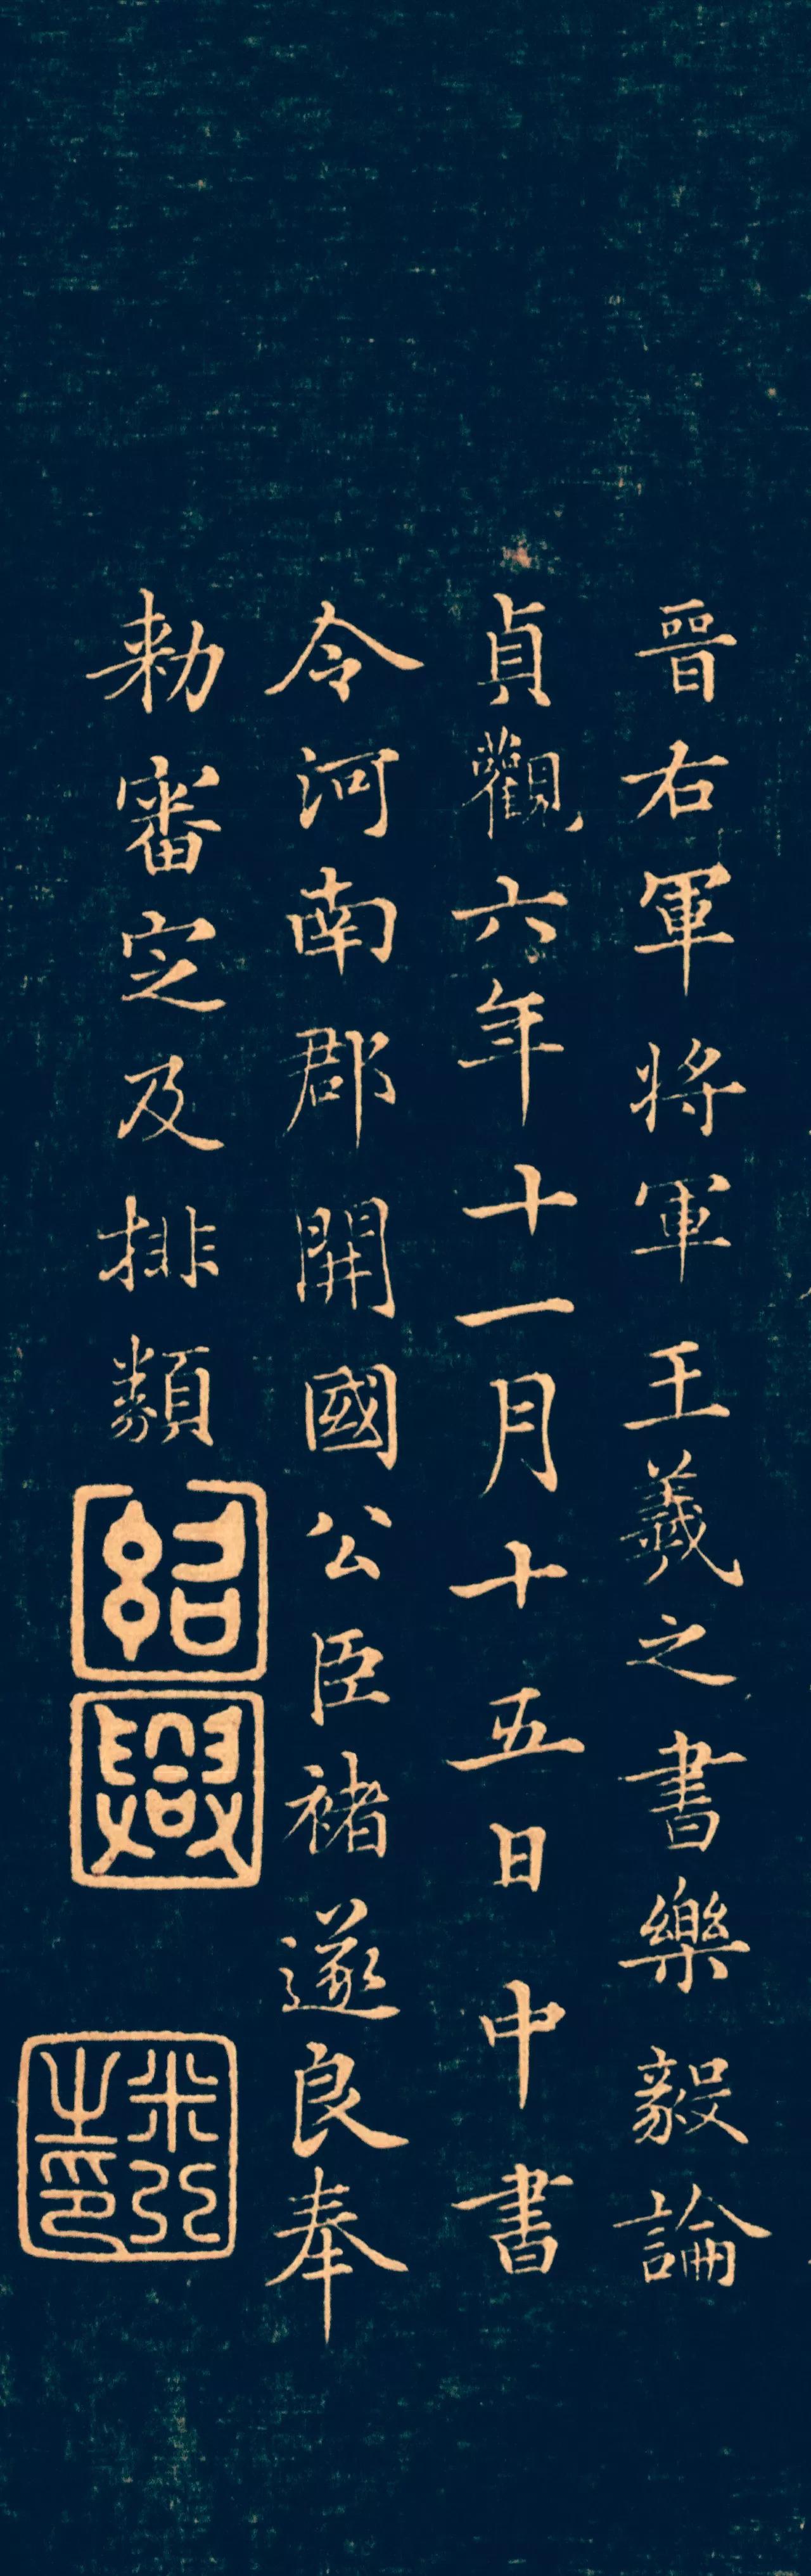 晉右軍將軍王羲之書樂毅論
貞觀六年十一月十五日中書
令河南郡開國公臣褚遂良奉
勅審定及排類
紹
興
米芾
之印